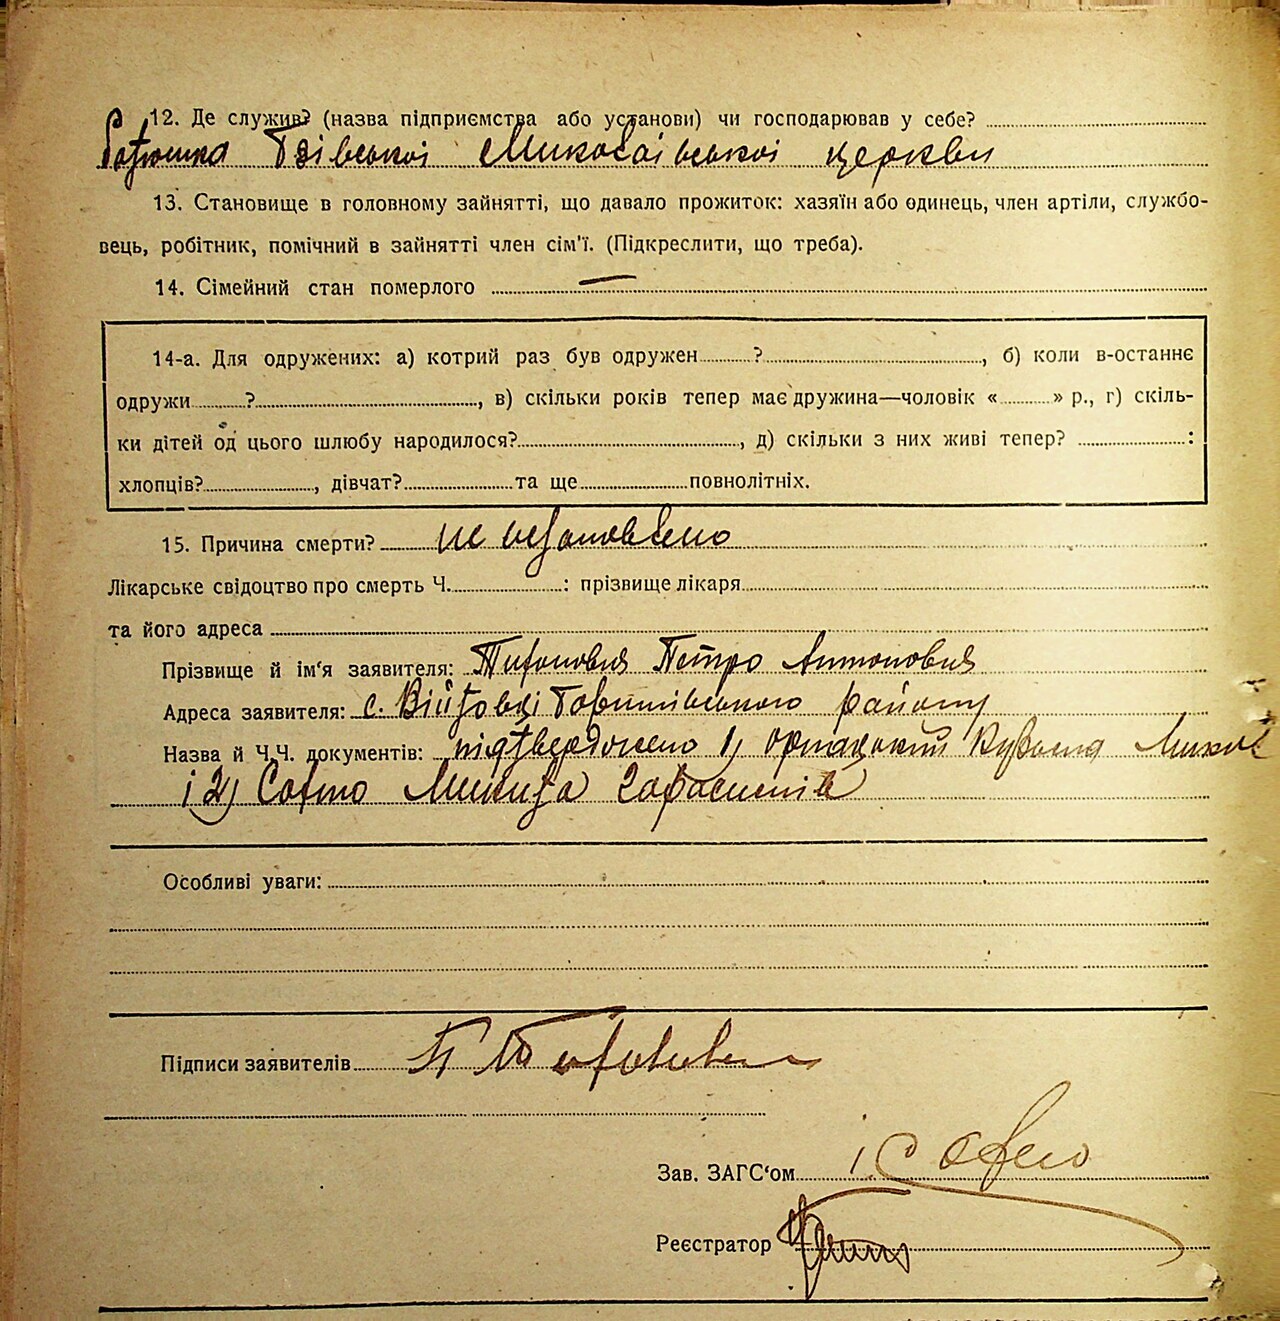 12. Де служив? (назва підприємства або установи) чи господарював у себе?
Батюшка Гзівської Миколаївської церкви
13. Становище в головному зайнятті, що давало прожиток: хазяїн або одинець, член артілі, службо-
вець, робітник, помічний в зайнятті член сім'ї. (Підкреслити, що треба).
14. Сімейний стан померлого —
14-а. Для одружених: а) котрий раз був одружен ? , б) коли в-останнє
одружи ? , в) скільки років тепер має дружина—чоловік « » р., г) скіль-
ки дітей од цього шлюбу народилося? , д) скільки з них живі тепер? :
хлопців? , дівчат? та ще повнолітніх.
15. Причина смерти? не встановлено
Лікарське свідоцтво про смерть Ч. : прізвище лікаря
та його адреса
Прізвище й ім'я заявителя: Петро Антонович
Адреса заявителя: с. Війтовці району
Назва й Ч.Ч. документів: підтверджено 1)
і 2) Микита
Особливі уваги:
Підписи заявителів
Зав. ЗАГС'ом
Реєстратор